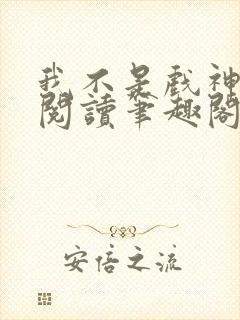 我不是戲神
閱讀筆趣閣
安信之流